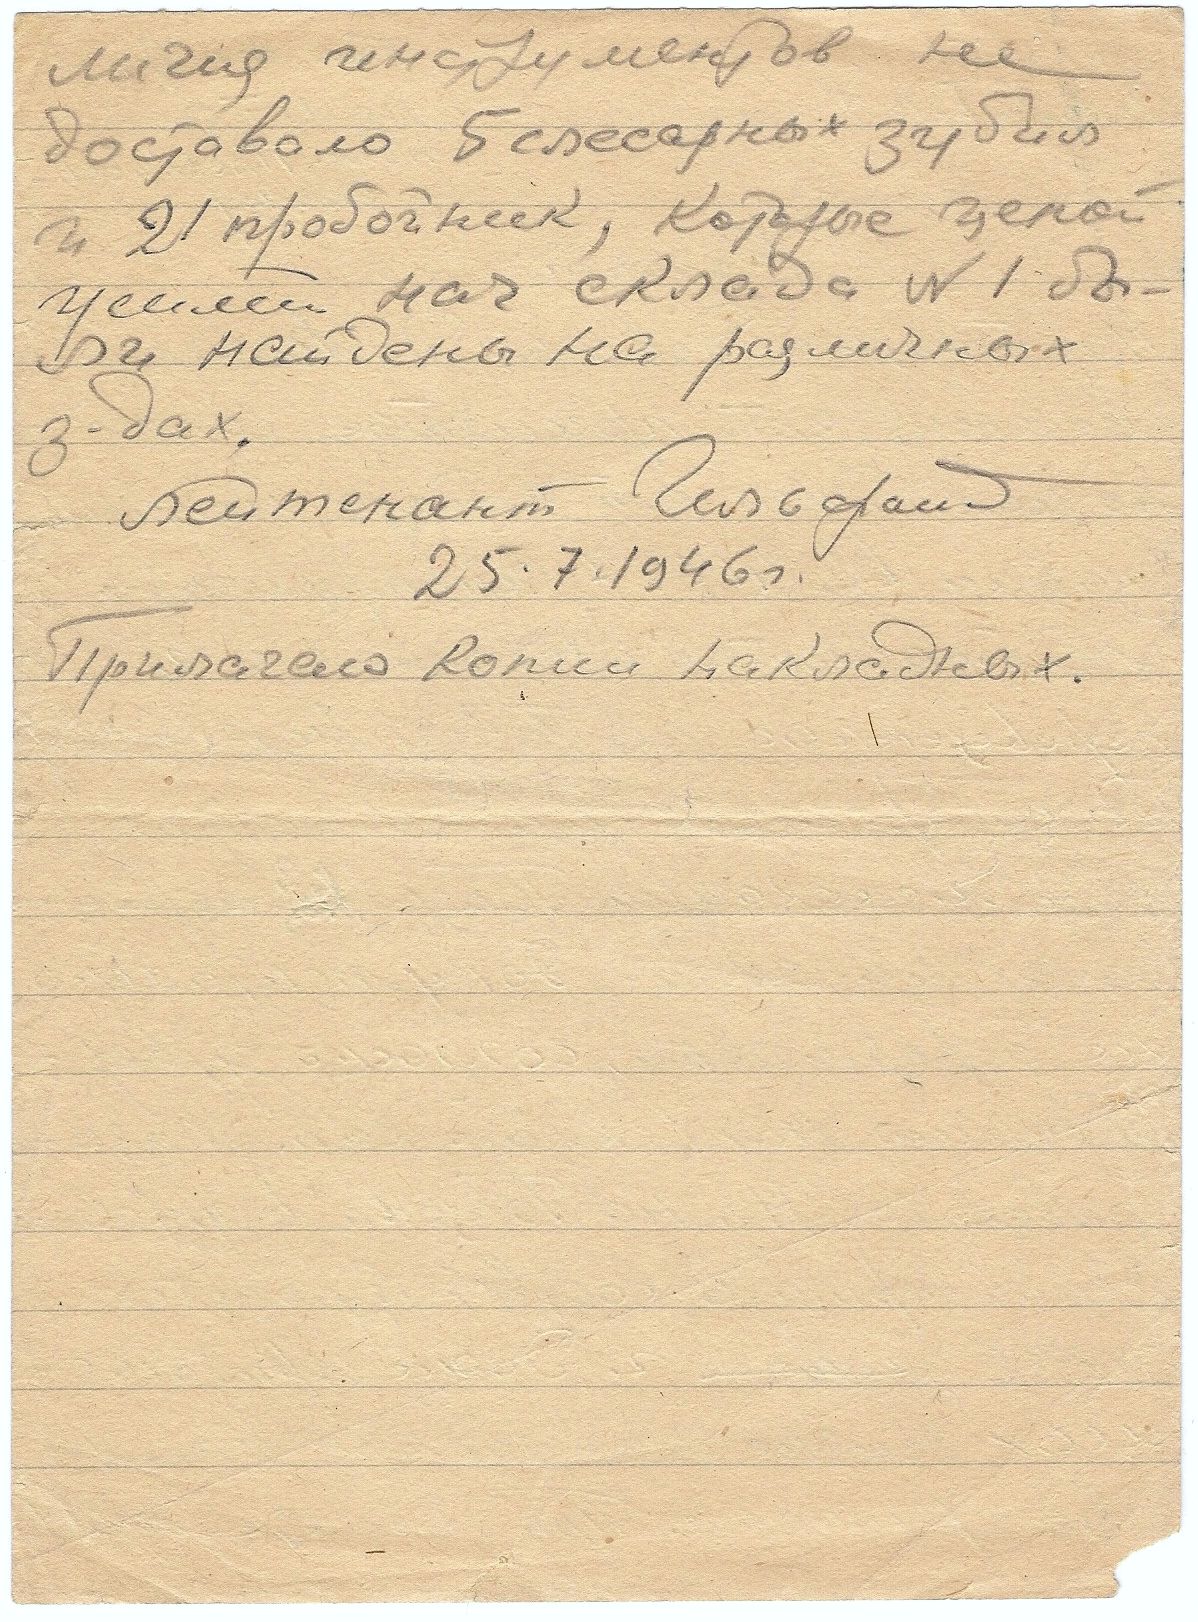 личия инструментов не
доставало 5 слесарных зубил
и 21 пробойник, которые ценой
усилий нач склада № 1 бы-
ли найдены на различных
з-дах.
Лейтенант Гильфанд
25.7.1946 г.
Прилагаю копии накладных.